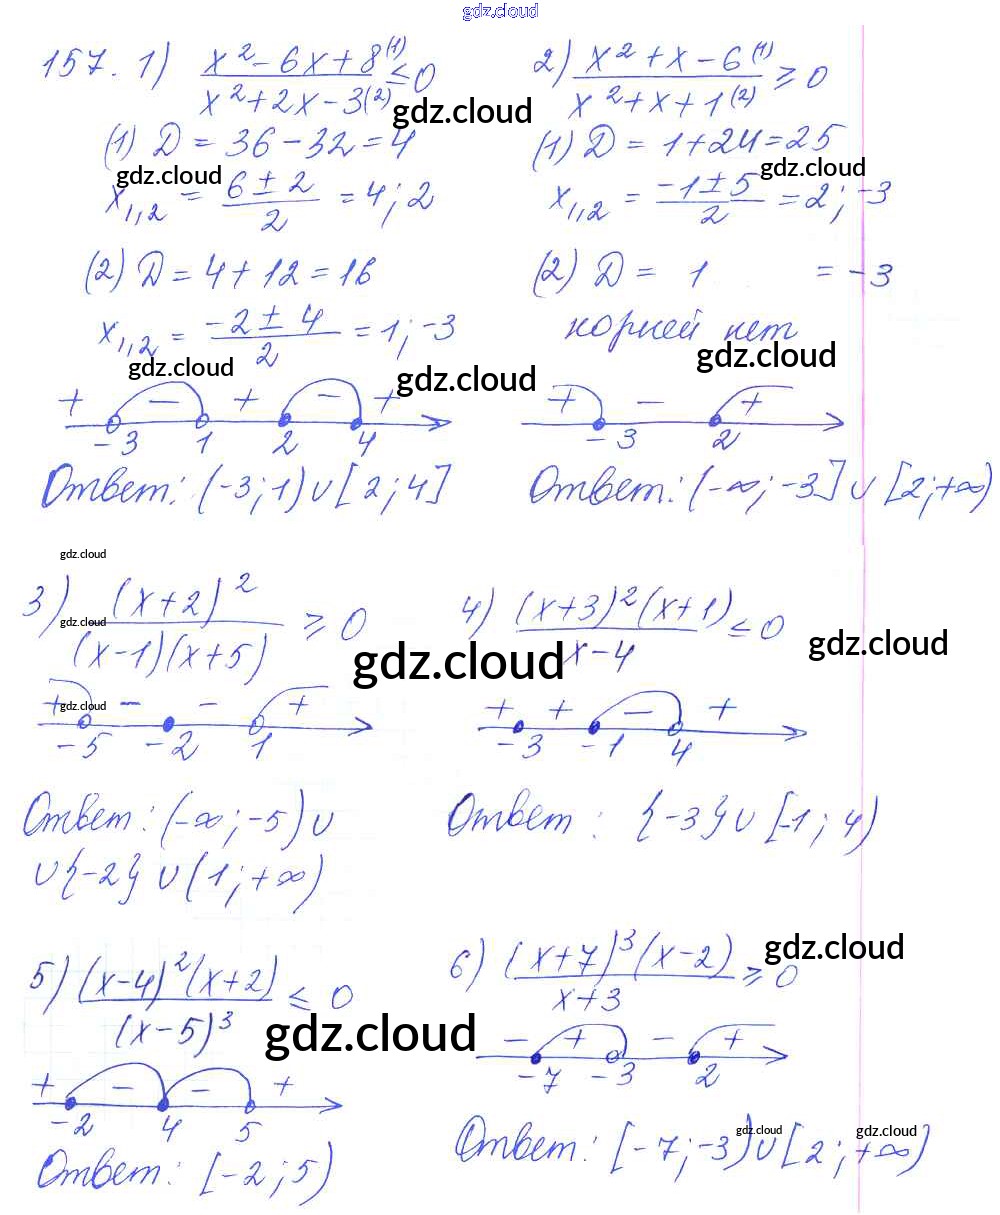 gdz.cloud
157. 1) (x² - 6x + 8 (1)) / (x² + 2x - 3 (2)) ≤ 0
gdz.cloud
(1) D = 36 - 32 = 4
gdz.cloud
x₁,₂ = (6 ± 2) / 2 = 4; 2
(2) D = 4 + 12 = 16
x₁,₂ = (-2 ± 4) / 2 = 1; -3
gdz.cloud
gdz.cloud
+ - + - +
-3 1 2 4
Ответ: (-3; 1) ∪ [2; 4]
2) (x² + x - 6 (1)) / (x² + x + 1 (2)) ≥ 0
(1) D = 1 + 24 = 25
gdz.cloud
x₁,₂ = (-1 ± 5) / 2 = 2; -3
(2) D = 1 = -3
корней нет
gdz.cloud
+ - +
-3 2
Ответ: (-∞; -3] ∪ [2; +∞)
gdz.cloud
3) (x+2)² / ((x-1)(x+5)) ≥ 0
gdz.cloud
gdz.cloud
+ - - +
gdz.cloud
-5 -2 1
Ответ: (-∞; -5) ∪
∪ {-2} ∪ (1; +∞)
4) (x+3)²(x+1) / (x-4) ≤ 0
gdz.cloud
+ + - +
-3 -1 4
Ответ: {-3} ∪ [-1; 4)
5) (x-4)²(x+2) / (x-5)³ ≤ 0
gdz.cloud
+ - - +
-2 4 5
Ответ: [-2; 5)
6) (x+7)³(x-2) / (x+3) ≥ 0
gdz.cloud
- + - +
-7 -3 2
gdz.cloud
gdz.cloud
Ответ: [-7; -3) ∪ [2; +∞)